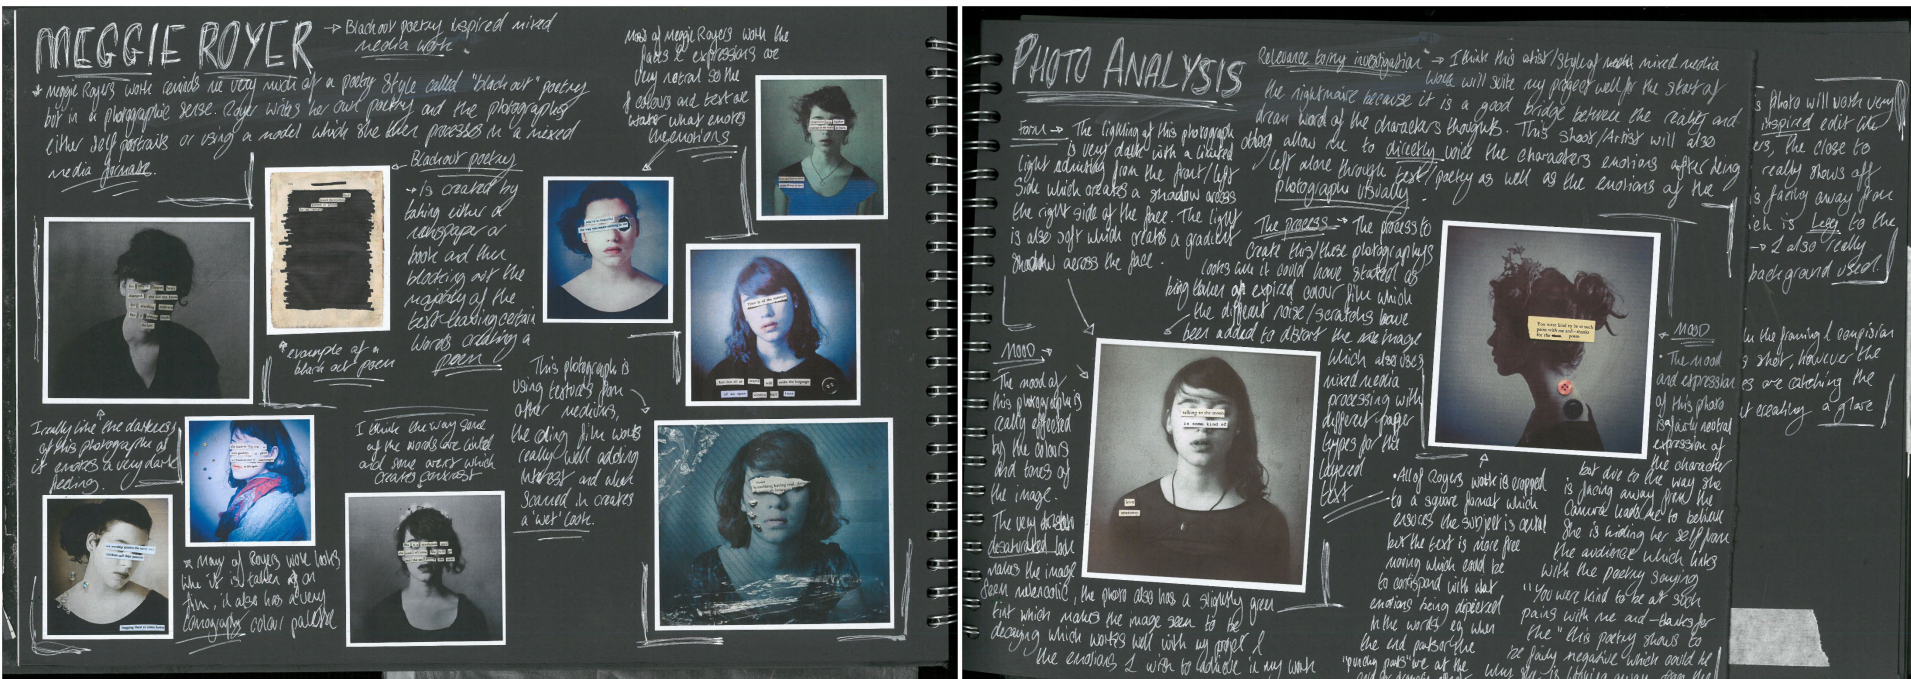 MEGGIE ROYER → Blackout poetry inspired mixed
media work.
* Meggie Royers work reminds me very much of a poetry style called "black out" poetry
but in a photographic sense. Royer writes her own poetry and the photographs
either self portraits or using a model which she then processes in a mixed
media formate.
Most of Meggie Royers work the
faces & expressions are
very notral so the
colours and text are
what emotes
the emotions
Blackout poetry
→ is created by
taking either a
newspaper or
book and then
blocking out the
majority of the
text leaving certain
words creating a
poem
example of a
black out poem
This photograph is
using textures from
other mediums,
the cling film works
really well adding
interest and when
scanned in creates
a 'wet' look.
I really like the darkness
of this photograph as
it emotes a very dark
feeling.
I think the way some
of the words are linked
and some arent which
creates contrast
* Many of Royers work looks
like it is taken on
film, it also has a very
colour palette
PHOTO ANALYSIS
Relevance to my investigation → I think this artist/style of mixed media
work will suite my project well for the start of
the nightmare because it is a good bridge between the reality and
dream word of the characters thoughts. This shoot/Artist will also
allow me to directly voice the characters emotions after being
left alone through text/poetry as well as the emotions of the
photograph visually.
Form → The lighting of this photograph
is very dark with a limited
light from the front/left
side which creates a shadow across
the right side of the face. The light
is also soft which creates a gradient
shadow across the face.
The process → The process to
create this/these photographs
looks like it could have started as
being taken on expired colour film which
the different noise/scratches have
been added to distort the image
which also uses
mixed media
processing with
different paper
types for the
layered
text
MOOD →
The mood of
this photograph is
really effected
by the colours
and tones of
the image.
The very
desaturated look
makes the image
seem melencolic, the photo also has a slightly green
tint which makes the image seem to be
decaying which works well with my project &
the emotions I wish to achieve in my work
talking to the moon
is some kind of
You were kind to be at such
pains with me and—thanks
for the poem
• All of Royers work is cropped
to a square format which
ensures the subject is central
but the text is more free
moving which could be
to corrispond with what
emotions being
in the words eg when
the end part of the
MOOD
• The mood
and expression
of this photo
is fairly neutral
expression of
the character
but due to the way she
is facing away from the
camera leads me to believe
she is hiding her self from
the audience which links
with the poetry saying
"You were kind to be at such
pains with me and - thanks for
the" this poetry shows to
be fairly negative which could be
s photo will work very
inspired edit the
ers, the close to
really shows off
s facing away from
ich is key to the
→ I also really
background used.
the framing & compision
shot, however the
es are catching the
t creating a glare